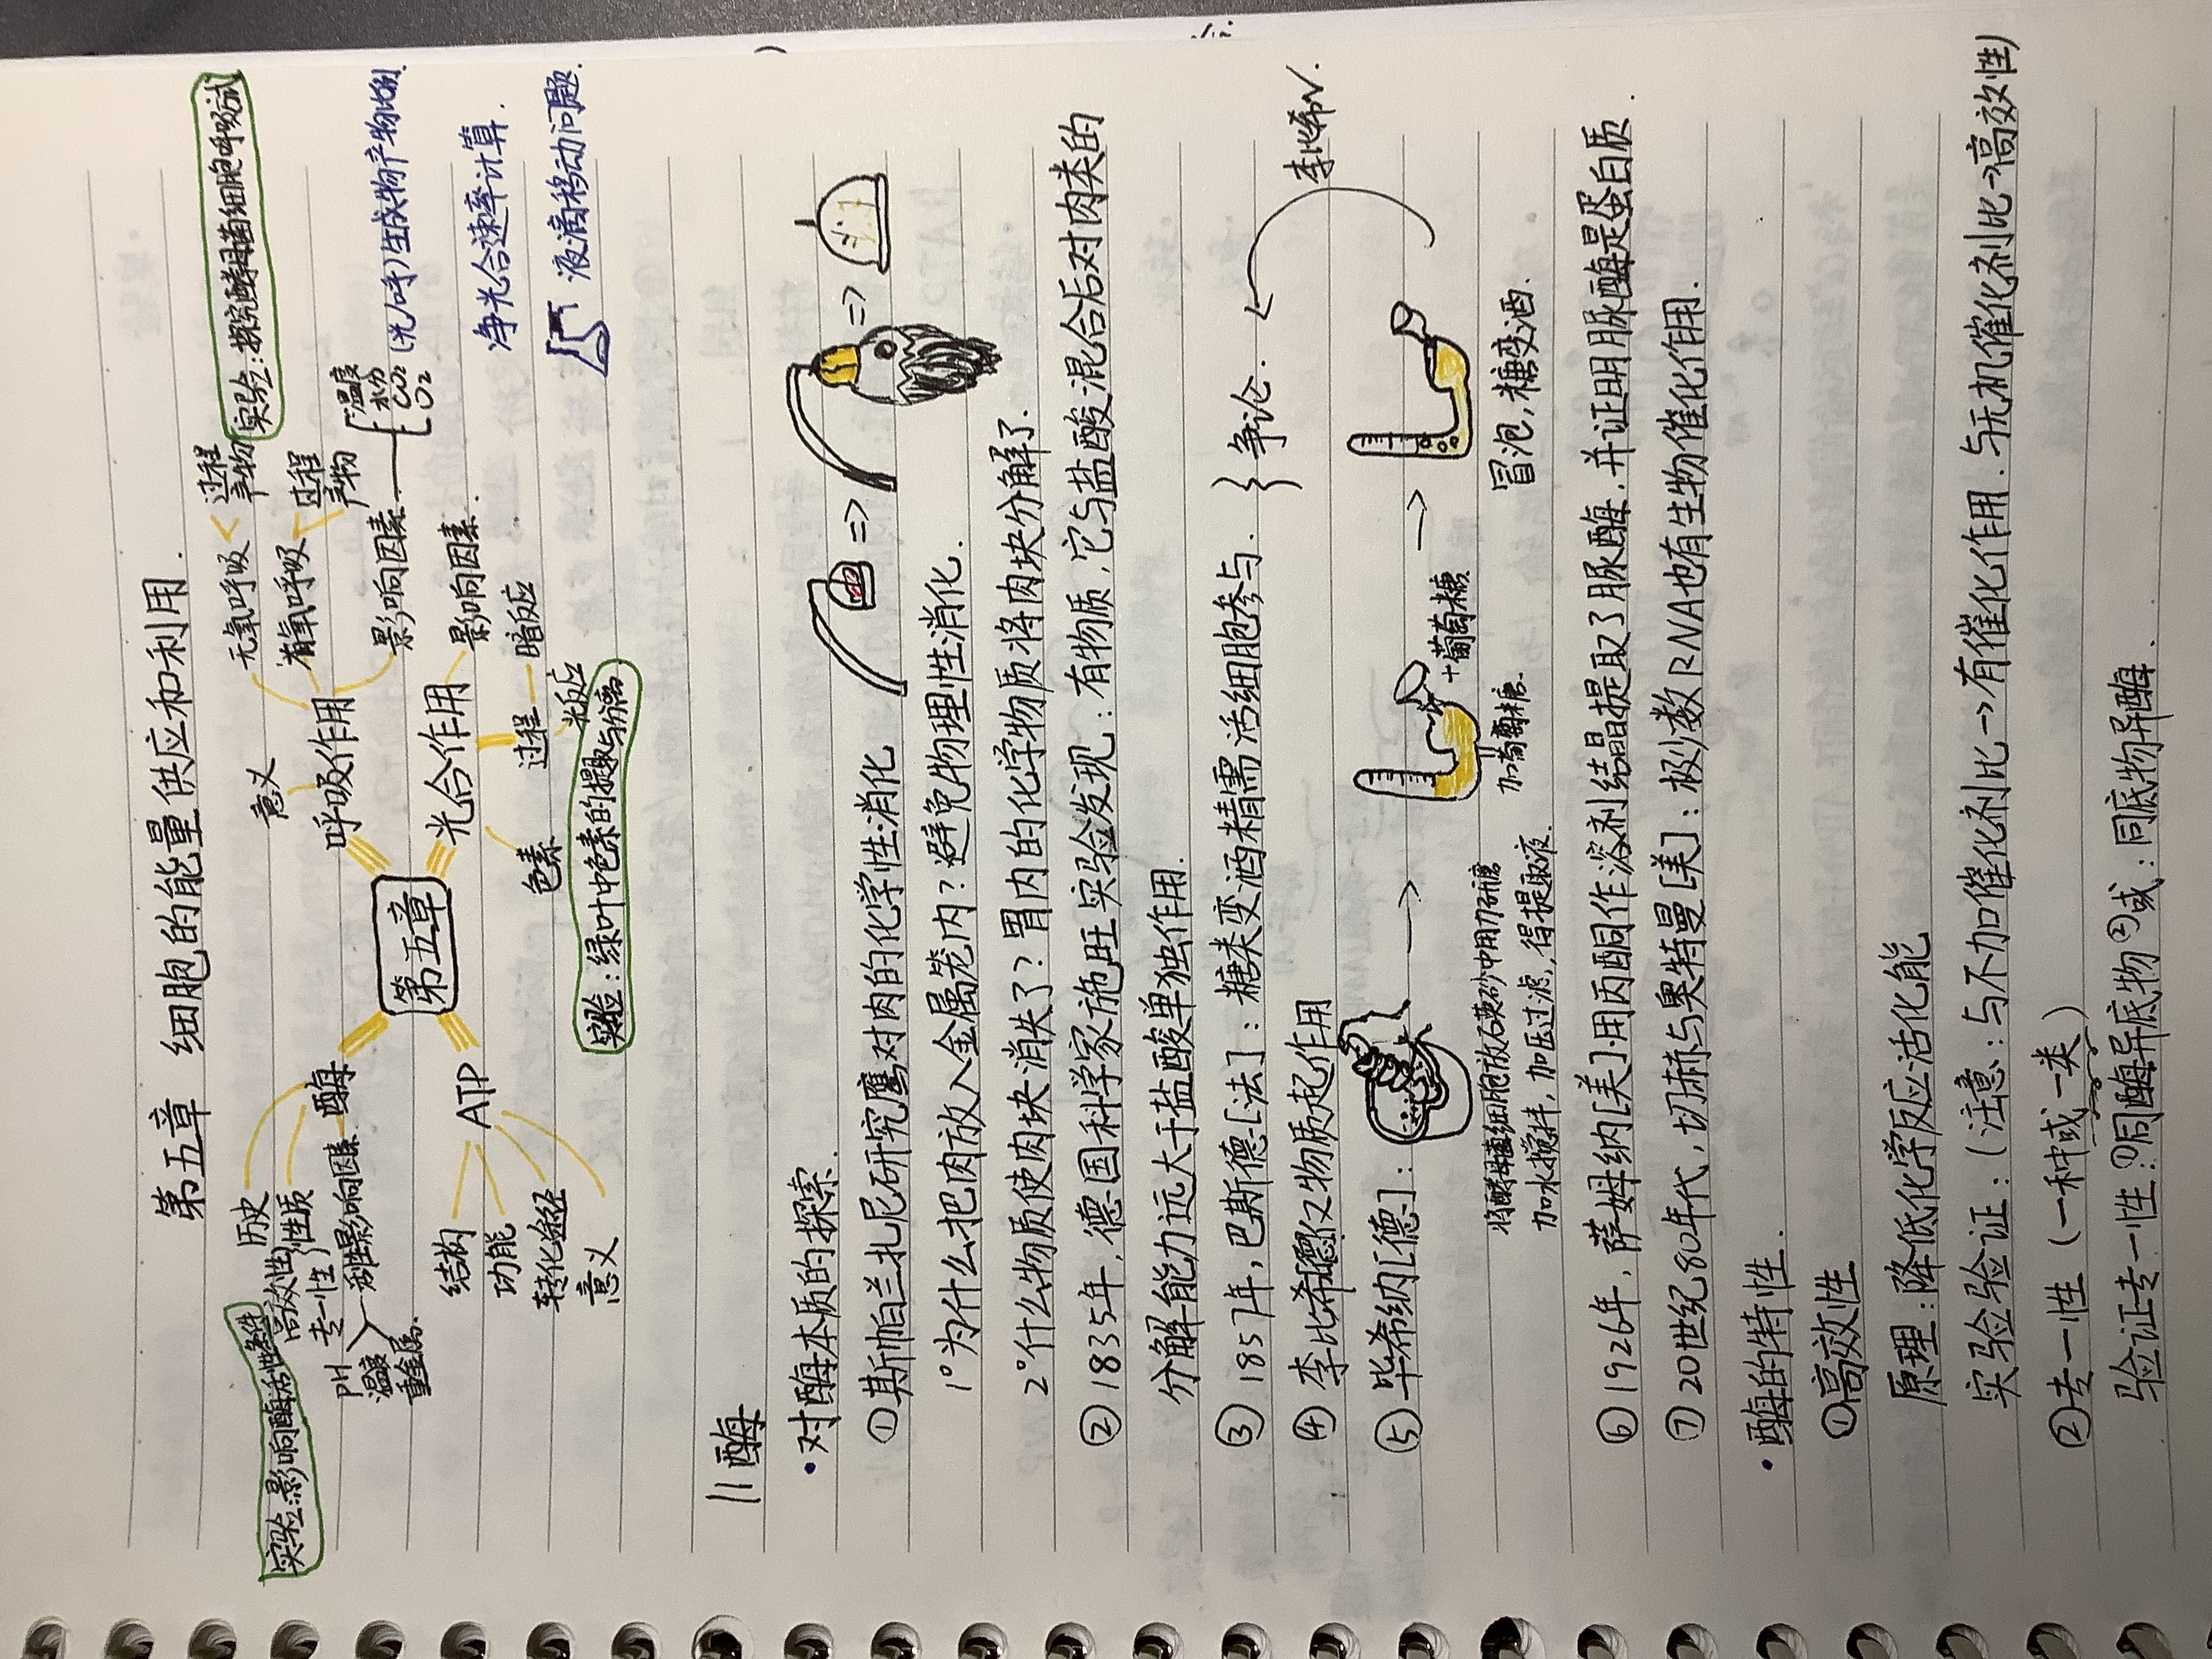 第五章 细胞的能量供应和利用.
实验:影响酶活性条件
历史
高效性
专一性
性质
PH
温度
重金属.
活性影响因素
酶
ATP
结构
功能
转化途径
意义
第五章
呼吸作用
意义
无氧呼吸
过程
产物
实验:探究酵母菌细胞呼吸方式
有氧呼吸
过程
产物
影响因素
温度
水分
CO2
O2
光合作用
影响因素.
过程
暗反应
光反应
色素
实验:绿叶中色素的提取与分离
(光/呼)生成物产物比例.
净光合速率计算.
液滴移动问题.
酶
·对酶本质的探索.
①斯帕兰扎尼研究鹰对肉的化学性消化
1°为什么把肉放入金属笼内?避免物理性消化.
2°什么物质使肉块消失了?胃内的化学物质将肉块分解了.
②1835年,德国科学家施旺实验发现:有物质,它与盐酸混合后对肉类的
分解能力远大于盐酸单独作用.
③1857年,巴斯德[法]:糖类变酒精需活细胞参与.
④李比希[德]仅物质起作用
}争论.
李比希√.
⑤毕希纳[德]:
→
+葡萄糖
→
将酵母菌细胞放石英砂中用力研磨
加水搅拌,加压过滤,得提取液.
加葡萄糖.
冒泡,糖变酒.
⑥1926年,萨姆纳[美]用丙酮作溶剂结晶提取了脲酶,并证明脲酶是蛋白质.
⑦20世纪80年代,切赫与奥特曼[美]:极少数RNA也有生物催化作用.
·酶的特性.
①高效性
原理:降低化学反应活化能
实验验证:(注意:与不加催化剂比→有催化作用.与无机催化剂比→高效性)
②专一性(一种或一类)
验证专一性:①同酶异底物②或:同底物异酶.